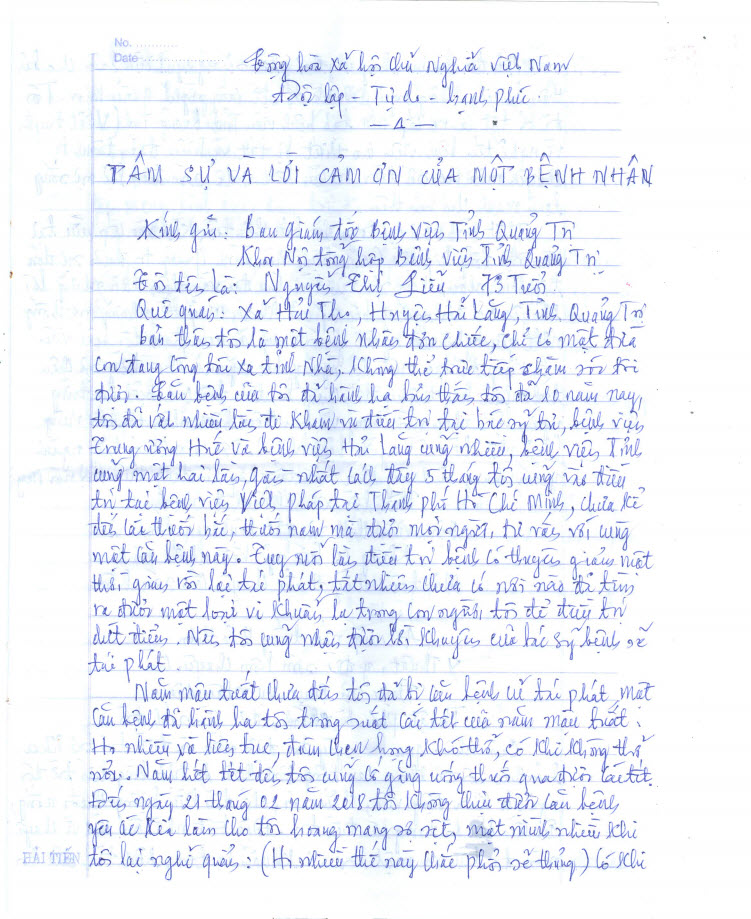 No. ............
Date
Cộng hòa xã hội chủ Nghĩa Việt Nam
Độc lập - Tự do - hạnh phúc
TÂM SỰ VÀ LỜI CẢM ƠN CỦA MỘT BỆNH NHÂN
Kính gửi: Ban giám đốc Bệnh viện Tỉnh Quảng Trị
Khoa Nội tổng hợp Bệnh viện Tỉnh Quảng Trị
Tôi tên là: Nguyễn Thị Liễu 73 Tuổi
Quê quán: Xã Hải Thọ, Huyện Hải Lăng, Tỉnh Quảng Trị
bản thân tôi là một bệnh nhân đơn chiếc, chỉ có một đứa
con đang công tác xa tỉnh Nhà, không thể trực tiếp chăm sóc tôi
được. Căn bệnh của tôi đã hành hạ bản thân tôi đã 10 năm nay,
tôi đã vất nhiều lần đi khám và điều trị tại bác sỹ tư, bệnh viện
Trung ương Huế và bệnh viện Hải Lăng cũng nhiều, bệnh viện Tỉnh
cũng một hai lần, gần nhất cách đây 5 tháng tôi cũng vào điều
trị tại bệnh viện Việt pháp tại Thành phố Hồ Chí Minh, chưa kể
đến các thuốc bắc, thuốc nam mà được mọi người, tư vấn với cùng
một căn bệnh này. Tuy mỗi lần điều trị bệnh có thuyên giảm một
thời gian rồi lại tái phát, tất nhiên chưa có nơi nào đã tìm
ra được một loại vi khuẩn lạ trong con người tôi để điều trị
dứt điểm. Nên tôi cũng nhận được lời khuyên của bác sỹ bệnh sẽ
tái phát
Năm mậu tuất chưa đến tôi đã bị căn bệnh cũ tái phát một
căn bệnh đã hành hạ tôi trong suốt cái tết của năm mậu tuất.
Ho nhiều và liên tục, đờm chẹn họng khó thở, có khi không thở
nổi. Năm hết tết đến tôi cũng cố gắng uống thuốc qua được cái tết.
Đến ngày 21 tháng 02 năm 2018 tôi không chịu được căn bệnh
quái ác kia làm cho tôi hoang mang sợ sệt, một mình nhiều khi
HẢI TIẾN tôi lại nghĩ quẩn: (Ho nhiều thế này chắc phổi sẽ thủng) có khi